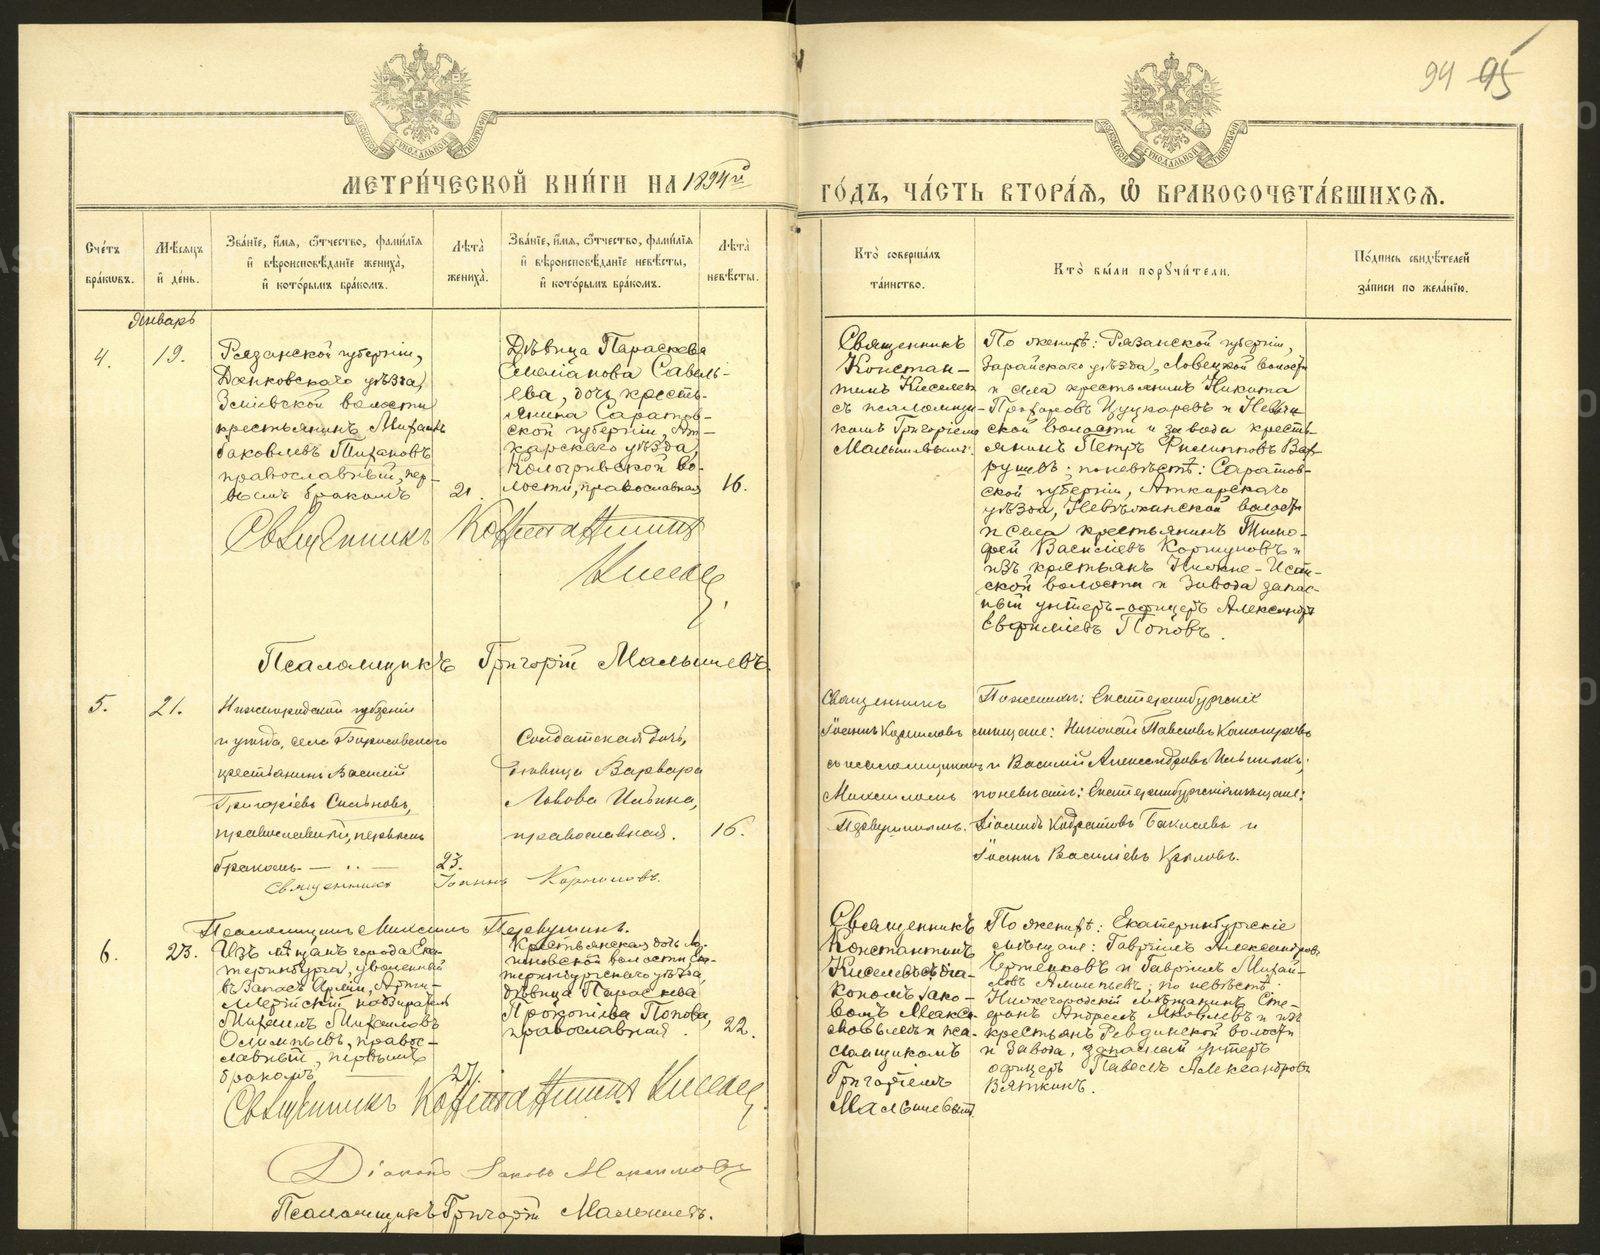 94 95
МОСКОВСКОЙ СѴНОДАЛЬНОЙ ТИПОГРАФІИ
МОСКОВСКОЙ СѴНОДАЛЬНОЙ ТИПОГРАФІИ
МЕТРИ́ЧЕСКОЙ КНИ́ГИ НА 1894й
ГО́ДЪ, ЧА́СТЬ ВТОРА́Я, Ѿ БРАКОСОЧЕТА́ВШИХСЯ.
Сче́тъ бра́кѡвъ.
Мѣ́сяцъ и҆ де́нь.
Зва́нїе, и҆́мя, ѻ҆́тчество, фами́лїя и҆ вѣроисповѣ́данїе жениха̀, и҆ кото́рымъ бра́комъ.
Лѣ́та жениха̀.
Зва́нїе, и҆́мя, ѻ҆́тчество, фами́лїя и҆ вѣроисповѣ́данїе невѣ́сты, и҆ кото́рымъ бра́комъ.
Лѣ́та невѣ́сты.
Кто̀ соверша́лъ та́инство.
Кто̀ бы́ли поручи́тели.
По́дпись свидѣ́телей за́писи по жела́нїю.
Январь
4.
19.
Рязанской губерніи,
Данковскаго уѣзда,
волости
крестьянинъ Михаилъ
Яковлевъ Тихановъ
православный, пер-
вымъ бракомъ
21.
Дѣвица Параскева
Емеліанова Савель-
ева, дочь кресть-
янина Саратов-
ской губерніи, Ат-
карскаго уѣзда,
во-
лости, православная
16.
Священникъ
Констан-
тинъ Киселевъ
съ псаломщи-
комъ Григоріемъ
Малышевымъ.
По женихѣ: Рязанской губерніи,
Зарайскаго уѣзда, Ловецкой волости
и села крестьянинъ Никита
Прохоровъ Цуцкаревъ и Невьян-
ской волости и завода кресть-
янинъ Петръ Филипповъ Вах-
рушевъ; по невѣстѣ: Саратов-
ской губерніи, Аткарскаго
уѣзда, волости
и села крестьянинъ Тимо-
фей Василіевъ Коршуновъ и
изъ крестьянъ Нижне-Исет-
ской волости и завода запас-
ный унтеръ-офицеръ Александръ
Евфиміевъ Поповъ.
Священникъ Константинъ
Киселевъ.
Псаломщикъ Григорій Малышевъ.
5.
21.
Нижегородской губерніи
и уѣзда, села Борисовскаго
крестьянинъ Василій
Григоріевъ Смирновъ,
православный, первымъ
бракомъ
23.
Солдатская дочь,
дѣвица Варвара
Львова Ильина,
православная.
16.
Священникъ
Іоаннъ Корниловъ
съ псаломщикомъ
Михаиломъ
Первушинымъ.
По женихѣ: Екатеринбургскіе
мѣщане: Николай Павловъ
и Василій Александровъ Ильиныхъ;
по невѣстѣ: Екатеринбургскіе мѣщане:
Кодратовъ Баклаевъ и
Іоаннъ Василіевъ Крыловъ.
Священникъ Іоаннъ Корниловъ.
Псаломщикъ Михаилъ Первушинъ.
6.
23.
Изъ мѣщанъ города Ека-
теринбурга, уволенный
въ запасъ арміи, арти-
ллерійскій надзиратель
Михаилъ Михаиловъ
Олимпьевъ, право-
славный, первымъ
бракомъ
27.
Крестьянская дочь Ло-
гиновской волости Ека-
теринбургскаго уѣзда,
дѣвица Параскева
Прокопіева Попова,
православная.
22.
Священникъ
Константинъ
Киселевъ съ діа-
кономъ Яко-
вомъ Макси-
мовымъ и пса-
ломщикомъ
Григоріемъ
Малышевымъ.
По женихѣ: Екатеринбургскіе
мѣщане: Гавріилъ Александровъ
Чертенковъ и Гавріилъ Михай-
ловъ Алипьевъ; по невѣстѣ:
Нижегородскій мѣщанинъ Сте-
фанъ Андреевъ Яковлевъ и изъ
крестьянъ Ревдинской волости
и завода, запасный унтеръ
офицеръ Павелъ Александровъ
Вяткинъ.
Священникъ Константинъ Киселевъ.
Діаконъ Яковъ Максимовъ
Псаломщикъ Григорій Малышевъ.